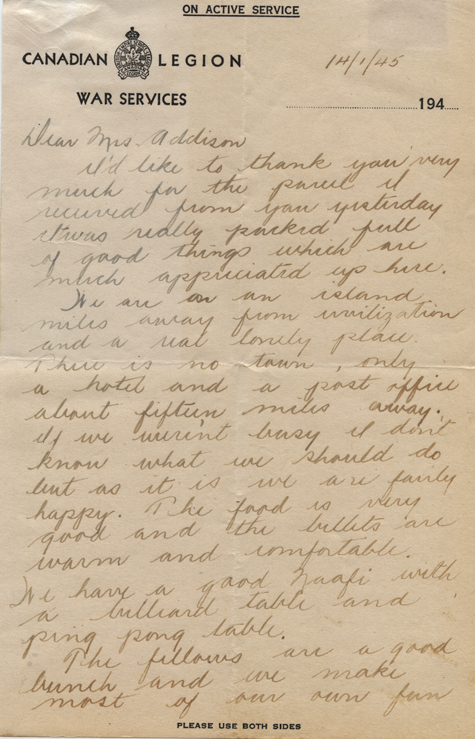 ON ACTIVE SERVICE
CANADIAN LEGION
WAR SERVICES
14/1/45
194
Dear Mrs Addison
I'd like to thank you very
much for the parcel I
received from you yesterday
it was really packed full
of good things which are
much appreciated up here.
We are on an island,
miles away from civilization
and a real lonely place.
There is no town, only
a hotel and a post office
about fifteen miles away.
If we weren't busy I don't
know what we should do
but as it is we are fairly
happy. The food is very
good and the billets are
warm and comfortable.
We have a good Naafi with
a billiard table and
ping pong table.
The fellows are a good
bunch and we make
most of our own fun
PLEASE USE BOTH SIDES